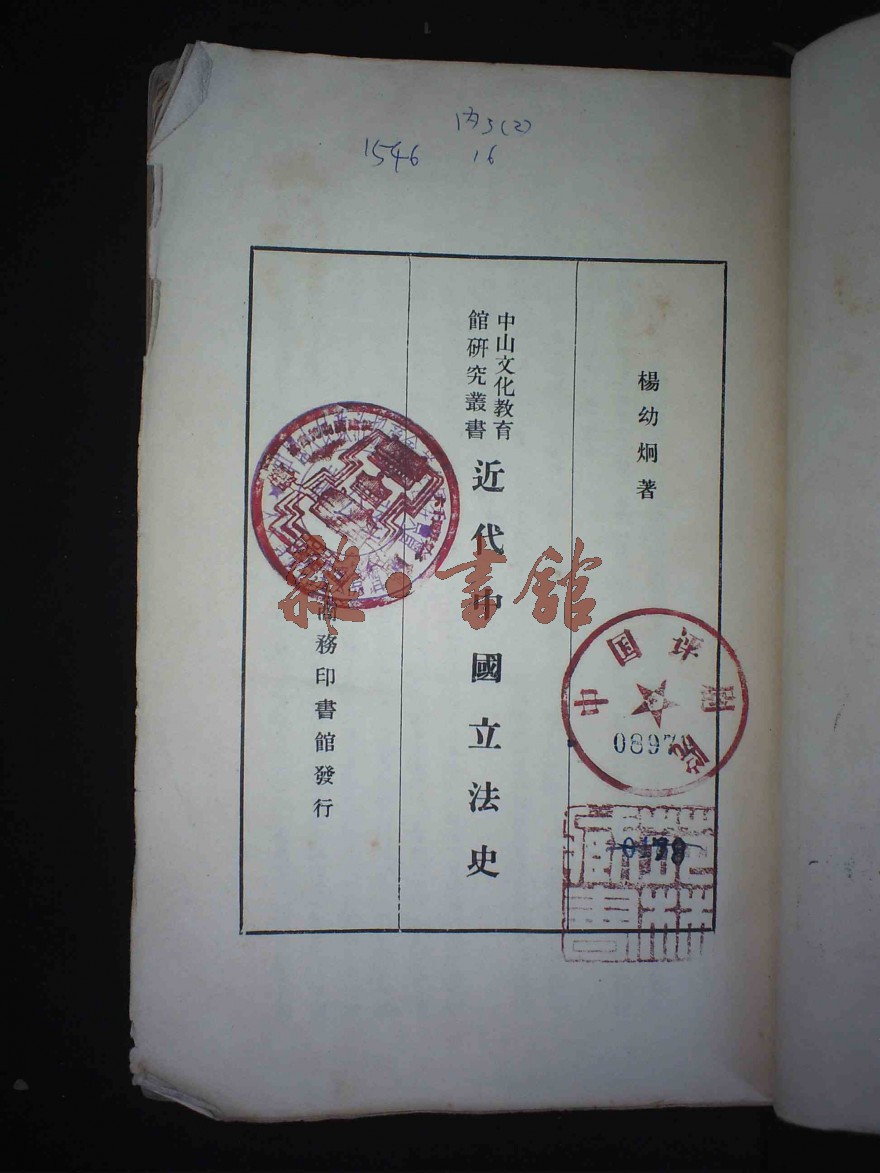 内3(2)
1546 16
楊幼炯著
中山文化教育
館研究叢書
近代中國立法史
商務印書館發行
雜·書館
中国
0179
藏書